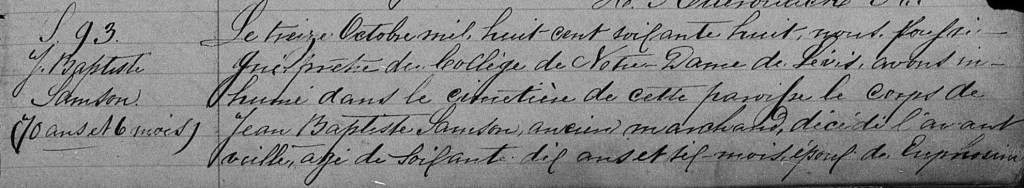 S. 93.
J. Baptiste
Samson
(70 ans et 6 mois)
Le treize Octobre mil huit cent soixante huit, nous soussi-
gné prêtre du Collège de Notre-Dame de Lévis, avons in-
humé dans le cimetière de cette paroisse le corps de
Jean Baptiste Samson, ancien marchand, décédé l'avant
veille, agé de soixante-dix ans et six mois, époux de